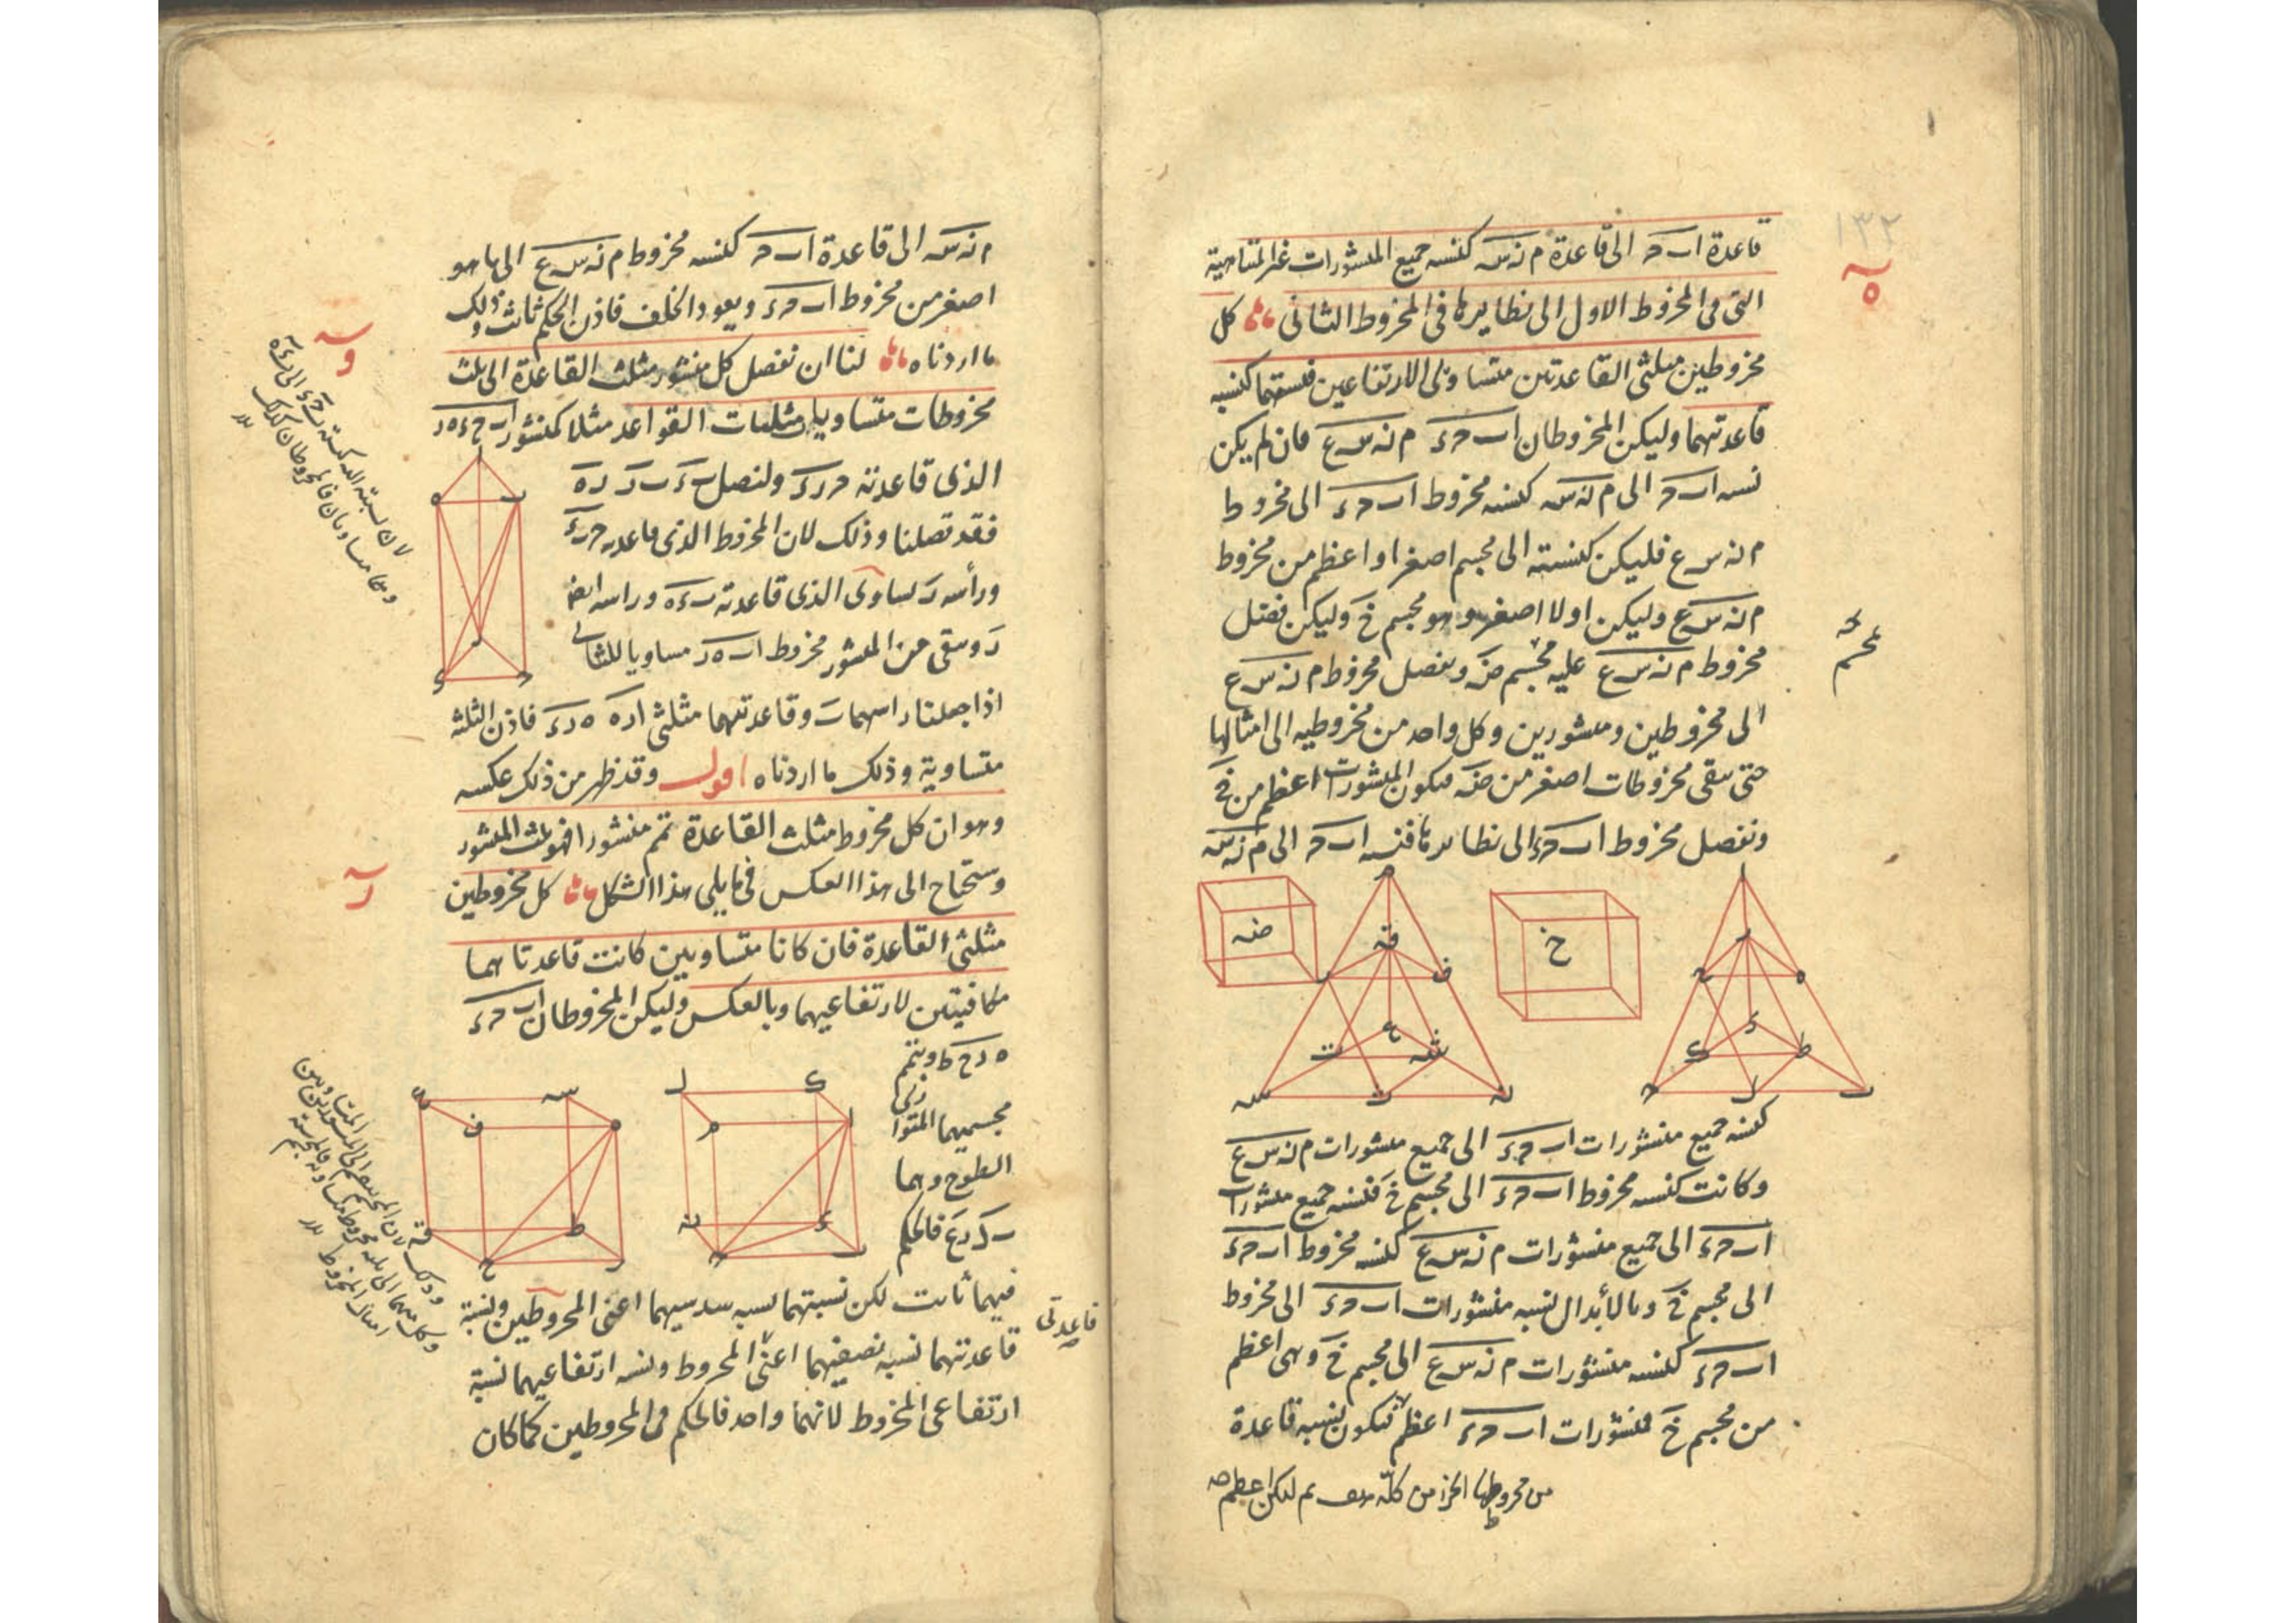 ١٣٢
ه
قاعدة اب‍ ح‍ الى قاعدة م ن س كنسبه جميع المنشورات غير المتناهية
التى فى المخروط الاول الى نظايرها فى المخروط الثانى كل
مخروطين مثلثى القاعدتين متساوى الارتفاعين فنسبتهما كنسبه
قاعدتيهما وليكن المخروطان اب‍ ح‍ ء م ن س ع فان لم يكن
نسبه اب‍ ح‍ الى م ن س كنسبه مخروط اب‍ ح‍ ء الى مخروط
م ن س ع فليكن كنسبته الى مجسم اصغر او اعظم من مخروط
م ن س ع وليكن اولا اصغر وهو مجسم خ وليكن فضل
مخروط م ن س ع عليه مجسم ض ونفصل مخروط م ن س ع
الى مخروطين ومنشورين وكل واحد من مخروطيه الى امثالها
حتى يبقى مخروطات اصغر من ض فيكون المنشورات اعظم من خ
ونفصل مخروط اب‍ ح‍ ء الى نظايرها فنسبه اب‍ ح‍ الى م ن س
ض
خ
كنسبه جميع منشورات اب‍ ح‍ ء الى جميع منشورات م ن س ع
وكانت كنسبه مخروط اب‍ ح‍ ء الى مجسم خ فنسبه جميع منشورات
اب‍ ح‍ ء الى جميع منشورات م ن س ع كنسبه مخروط اب‍ ح‍ ء
الى مجسم خ وبالابدال نسبه منشورات اب‍ ح‍ ء الى مخروط
اب‍ ح‍ ء كنسبه منشورات م ن س ع الى مجسم خ وهى اعظم
من مجسم خ فمنشورات اب‍ ح‍ ء اعظم فيكون نسبه قاعدة
من مخروطها الجزء من كله هف ثم ليكن اعظم
م ن س الى قاعدة اب‍ ح‍ كنسبه مخروط م ن س ع الى ما هو
اصغر من مخروط اب‍ ح‍ ء ويعود الخلف فاذن الحكم ثابت وذلك
ما اردناه لنا ان نفصل كل منشور مثلث القاعدة الى ثلث
مخروطات متساويات مثلثات القواعد مثلا كمنشور اب‍ ح‍ ء ه ر
الذى قاعدته ح‍ ب‍ ر ء ولنصل ب‍ ء ب‍ ر ر ه
فقد فصلنا وذلك لان المخروط الذى قاعدته ح‍ ب‍ ء
ورأسه ر يساوى الذى قاعدته ب‍ ء ه وراسه ايضا
ر ويبقى من المنشور مخروط اب‍ ه ر مساويا للثانى
اذا جعلنا راسهما ب‍ وقاعدتيهما مثلثى ا ر ه ه ر ء فاذن الثلثة
متساوية وذلك ما اردناه اقول وقد ظهر من ذلك عكسه
وهو ان كل مخروط مثلث القاعدة تمم منشورا فهو ثلث المنشور
وستحتاج الى هذا العكس فى ما يلى هذا الشكل كل مخروطين
مثلثى القاعدة فان كانا متساويين كانت قاعدتاهما
مكافيتين لارتفاعيهما وبالعكس وليكن المخروطان اب‍ ح‍ ء
ه ر ح ط ويتمم
مجسميهما المتوازى
السطوح وهما
ب‍ ك ر ع فالحكم
فيهما ثابت لكن نسبتهما نسبه سدسيهما اعنى المخروطين ونسبة
قاعدتيهما نسبه نصفيهما اعنى المخروط ونسبه ارتفاعيهما نسبة
ارتفاعى المخروط لانهما واحد فالحكم فى المخروطين كما كان
قاعدتى
و
ر